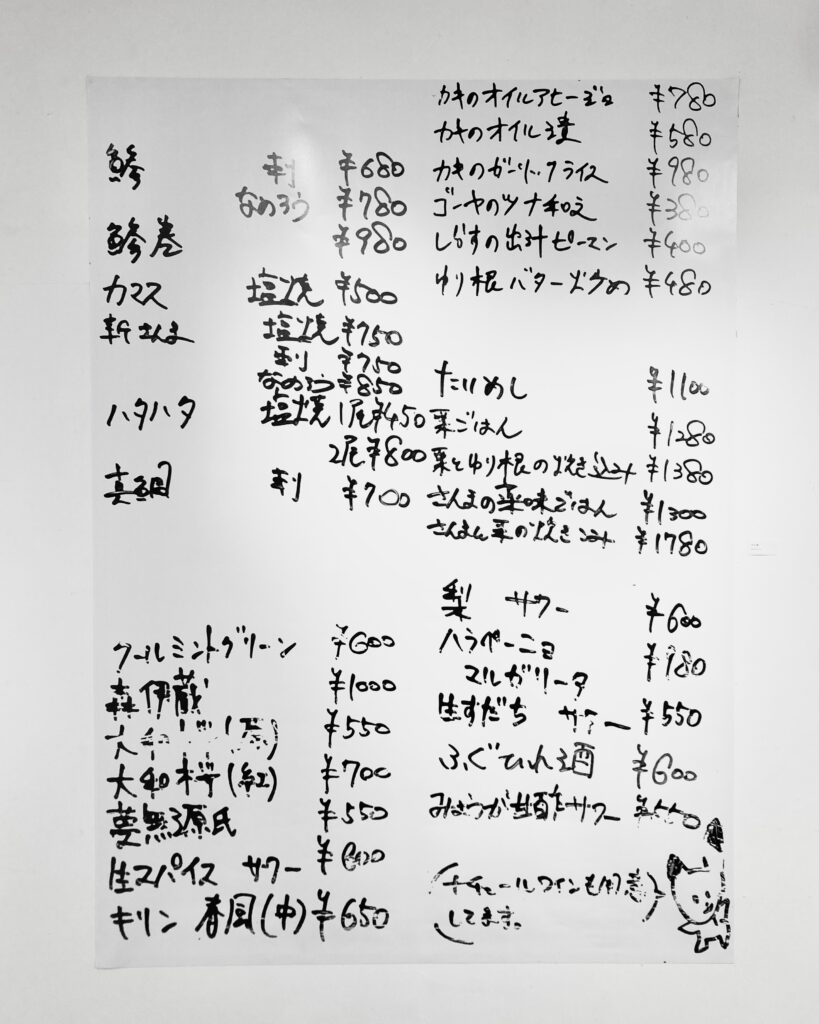 鯵 刺 ¥680
なめろう ¥780
鯵巻 ¥980
カマス 塩焼 ¥500
新さんま 塩焼 ¥750
刺 ¥750
なめろう ¥850
ハタハタ 塩焼 1尾¥450
2尾¥800
真鯛 刺 ¥700
クールミントグリーン ¥600
森伊蔵 ¥1000
¥550
大和桜(紅) ¥700
夢無源氏 ¥550
生スパイス サワー ¥600
キリン 春風(中) ¥650
カキのオイルアヒージョ ¥780
カキのオイル漬 ¥580
カキのガーリックライス ¥980
ゴーヤのツナ和え ¥380
しらすの出汁ピーマン ¥400
ゆり根バター炒め ¥480
たいめし ¥1100
栗ごはん ¥1280
栗とゆり根の炊き込み ¥1380
さんまの薬味ごはん ¥1300
さんまと栗の炊きこみ ¥1780
梨 サワー ¥600
ハラペーニョ
マルガリータ ¥980
生すだち サワー ¥550
ふぐひれ酒 ¥600
みょうが甘酢サワー ¥550
ナチュールワインも用意
してます。